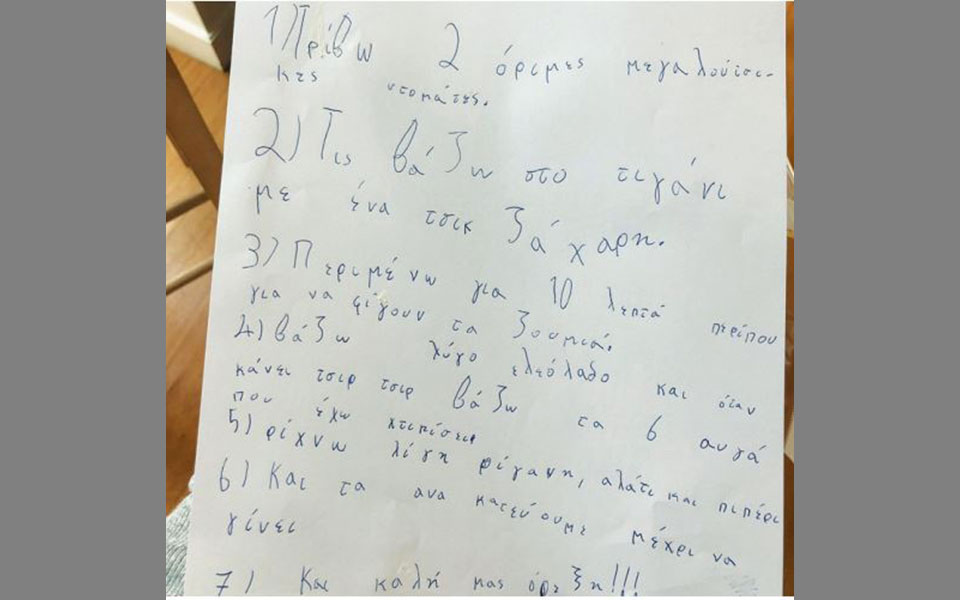 1) Τρίβω 2 όριμες μεγαλούτσι-
κες ντομάτες.
2) Τις βάζω στο τιγάνι
με ένα τσικ ζάχαρη.
3) Περιμένω για 10 λεπτά περίπου
για να φίγουν τα ζουμιά.
4) βάζω λύγο ελεόλαδο και όταν
κάνει τσιρ τσιρ βάζω τα 6 αυγά
που έχω χτιπίσει
5) ρίχνω λίγη ρίγανη, αλάτι και πιπέρι
6) Και τα ανακατεύουμε μέχρι να
γίνει
7) Και καλή μας όρεξη!!!